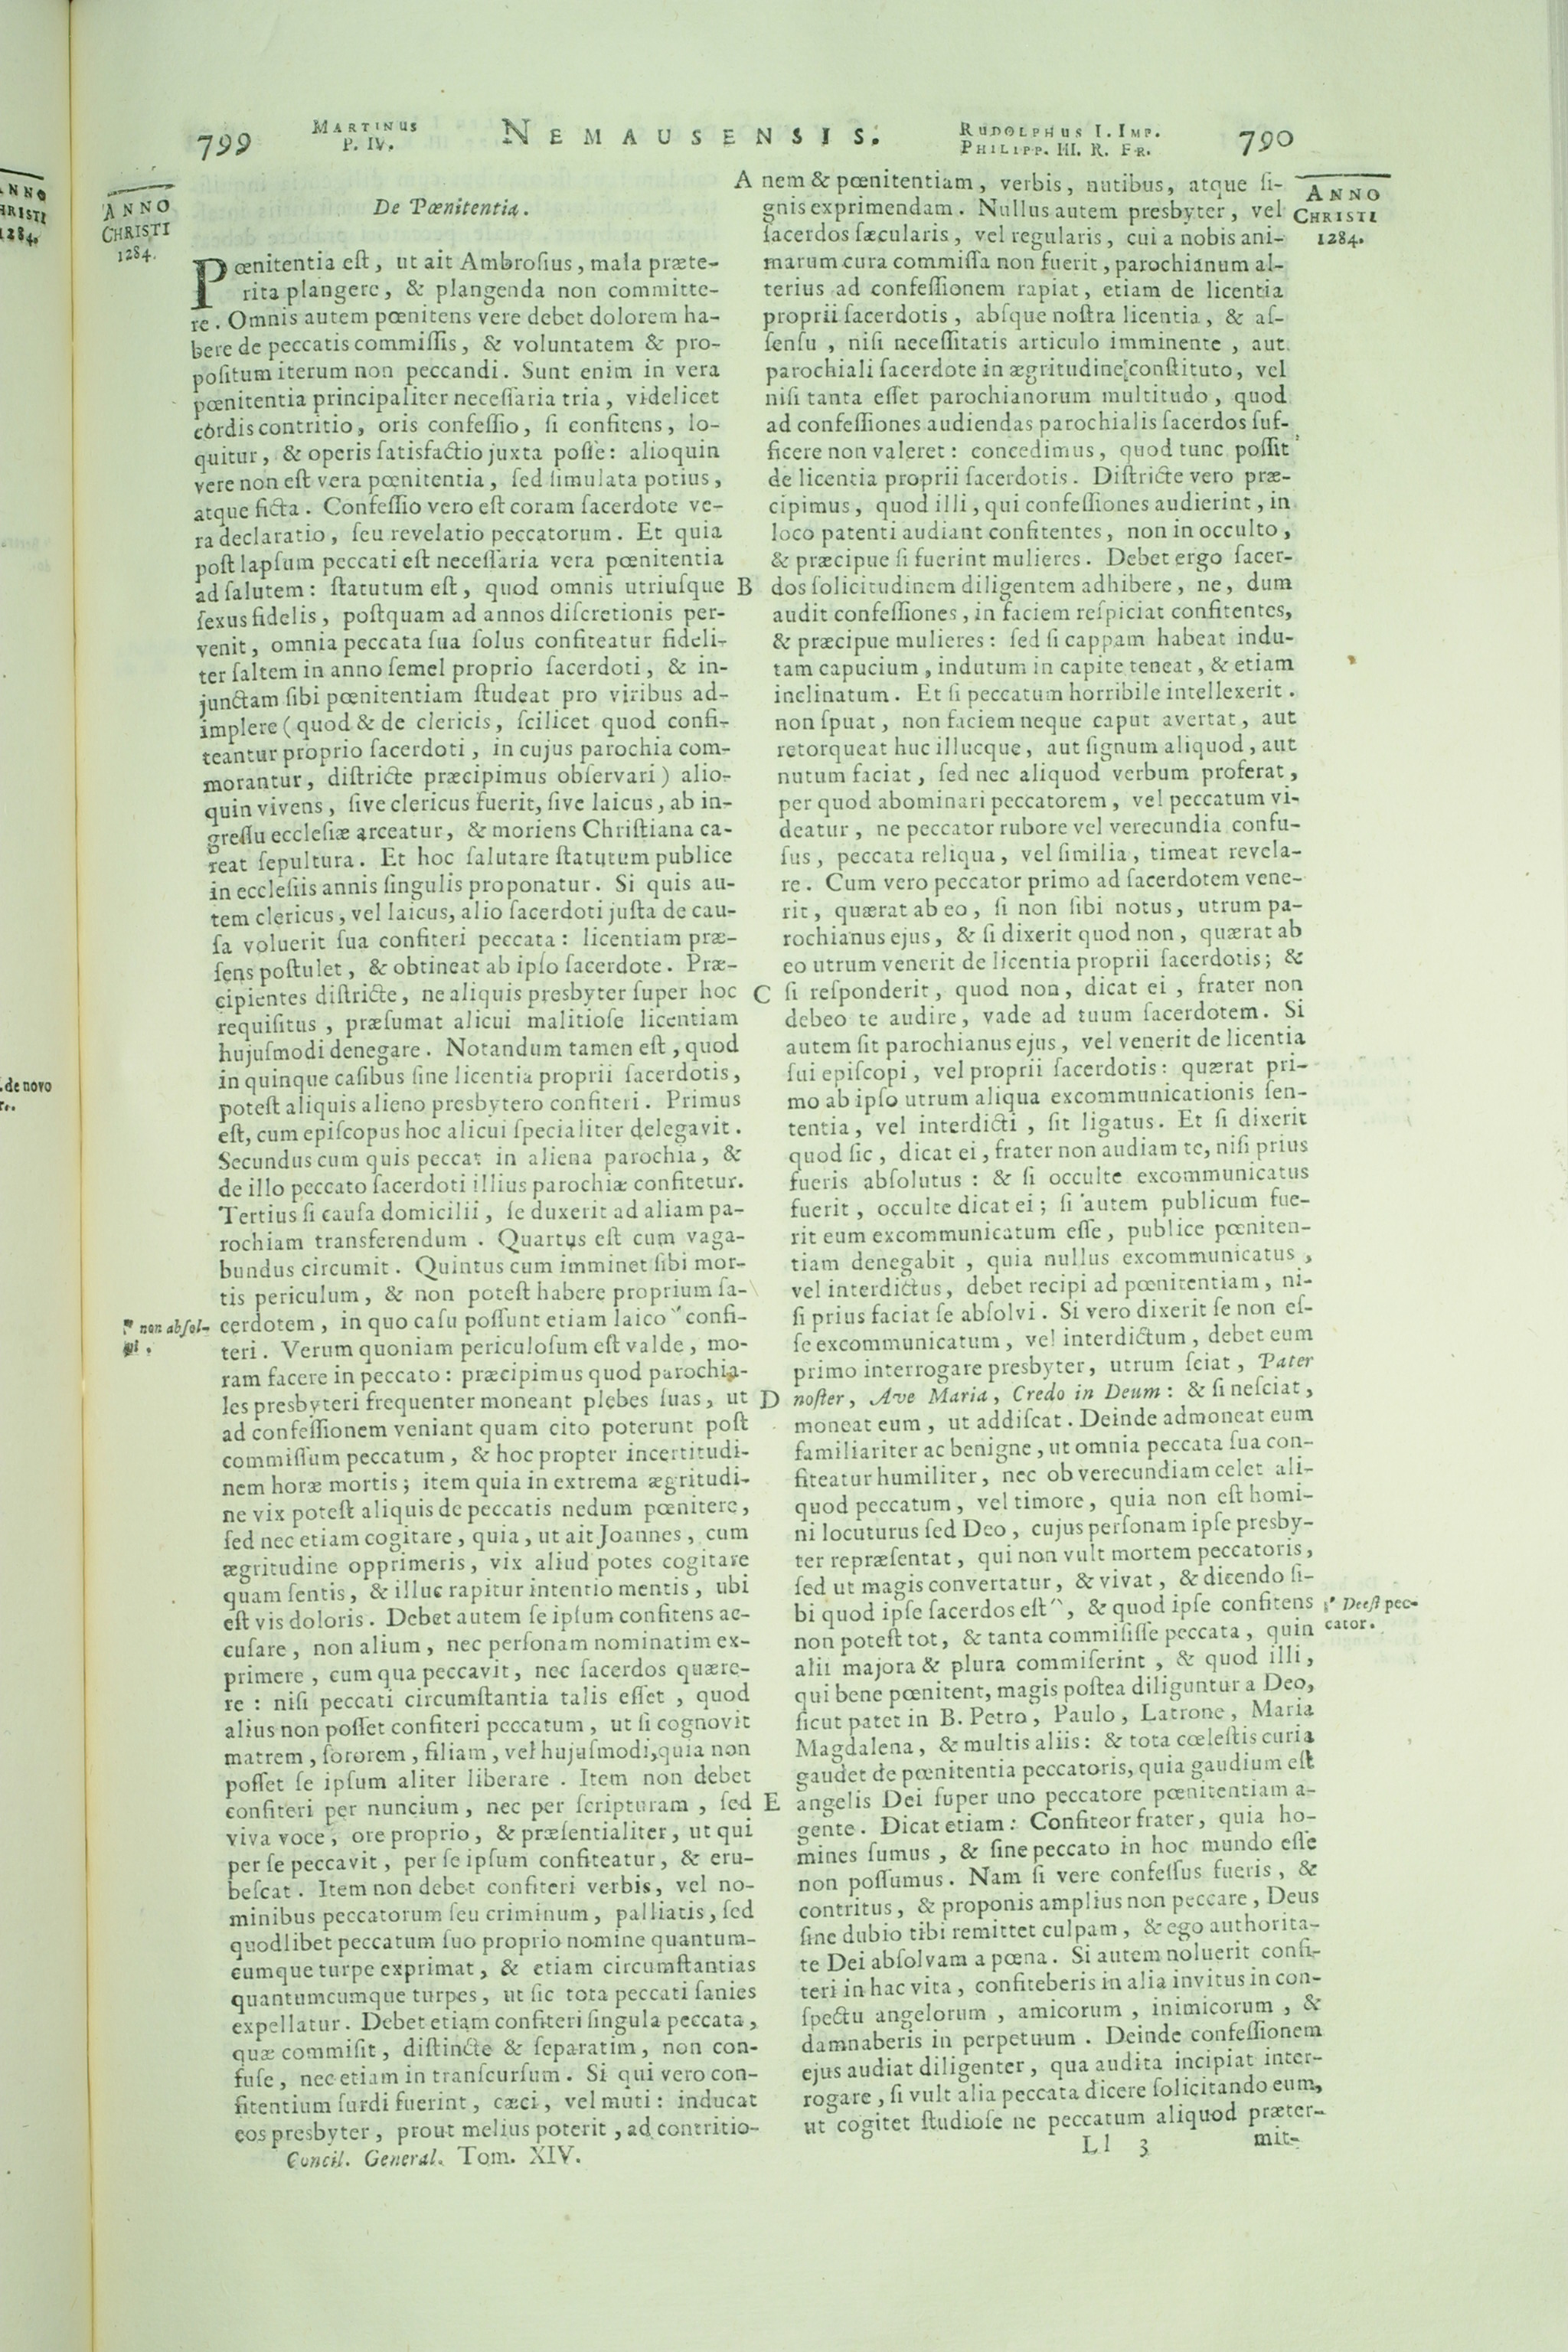 799
MARTINUS
P. IV.
NEMAUSENSIS.
RUDOLPHUS I. IMP.
PHILIPP. III. R. FR.
790
ANNO
CHRISTI
1284.
De Pœnitentia.
Pœnitentia eſt, ut ait Ambroſius, mala præte-
rita plangere, & plangenda non committe-
re. Omnis autem pœnitens vere debet dolorem ha-
bere de peccatis commiſſis, & voluntatem & pro-
poſitum iterum non peccandi. Sunt enim in vera
pœnitentia principaliter neceſſaria tria, videlicet
cordis contritio, oris confeſſio, ſi confitens, lo-
quitur, & operis ſatisfactio juxta poſſe: alioquin
vere non eſt vera pœnitentia, ſed ſimulata potius,
atque ficta. Confeſſio vero eſt coram ſacerdote ve-
ra declaratio, ſeu revelatio peccatorum. Et quia
poſt lapſum peccati eſt neceſſaria vera pœnitentia
ad ſalutem: ſtatutum eſt, quod omnis utriuſque
ſexus fidelis, poſtquam ad annos diſcretionis per-
venit, omnia peccata ſua ſolus confiteatur fideli-
ter ſaltem in anno ſemel proprio ſacerdoti, & in-
junctam ſibi pœnitentiam ſtudeat pro viribus ad-
implere (quod & de clericis, ſcilicet quod confi-
teantur proprio ſacerdoti, in cujus parochia com-
morantur, diſtricte præcipimus obſervari) alio-
quin vivens, ſive clericus fuerit, ſive laicus, ab in-
greſſu eccleſiæ arceatur, & moriens Chriſtiana ca-
reat ſepultura. Et hoc ſalutare ſtatutum publice
in eccleſiis annis ſingulis proponatur. Si quis au-
tem clericus, vel laicus, alio ſacerdoti juſta de cau-
ſa voluerit ſua confiteri peccata: licentiam præ-
ſens poſtulet, & obtineat ab ipſo ſacerdote. Præ-
cipientes diſtricte, ne aliquis presbyter ſuper hoc
requiſitus, præſumat alicui malitioſe licentiam
hujuſmodi denegare. Notandum tamen eſt, quod
in quinque caſibus ſine licentia proprii ſacerdotis,
poteſt aliquis alieno presbytero confiteri. Primus
eſt, cum epiſcopus hoc alicui ſpecialiter delegavit.
Secundus cum quis peccat in aliena parochia, &
de illo peccato ſacerdoti illius parochiæ confitetur.
Tertius ſi cauſa domicilii, ſe duxerit ad aliam pa-
rochiam transferendum. Quartus eſt cum vaga-
bundus circumit. Quintus cum imminet ſibi mor-
tis periculum, & non poteſt habere proprium ſa-
cerdotem, in quo caſu poſſunt etiam laico " confi-
" non abſol-
vi.
teri. Verum quoniam periculoſum eſt valde, mo-
ram facere in peccato: præcipimus quod parochia-
les presbyteri frequenter moneant plebes ſuas, ut
ad confeſſionem veniant quam cito poterunt poſt
commiſſum peccatum, & hoc propter incertitudi-
nem horæ mortis; item quia in extrema ægritudi-
ne vix poteſt aliquis de peccatis nedum pœnitere,
ſed nec etiam cogitare, quia, ut ait Joannes, cum
ægritudine opprimeris, vix aliud potes cogitare
quam ſentis, & illuc rapitur intentio mentis, ubi
eſt vis doloris. Debet autem ſe ipſum confitens ac-
cuſare, non alium, nec perſonam nominatim ex-
primere, cum qua peccavit, nec ſacerdos quære-
re: niſi peccati circumſtantia talis eſſet, quod
alius non poſſet confiteri peccatum, ut ſi cognovit
matrem, ſororem, filiam, vel hujuſmodi, quia non
poſſet ſe ipſum aliter liberare. Item non debet
confiteri per nuncium, nec per ſcripturam, ſed
viva voce, ore proprio, & præſentialiter, ut qui
per ſe peccavit, per ſe ipſum confiteatur, & eru-
beſcat. Item non debet confiteri verbis, vel no-
minibus peccatorum ſeu criminum, palliatis, ſed
quodlibet peccatum ſuo proprio nomine quantum-
cumque turpe exprimat, & etiam circumſtantias
quantumcumque turpes, ut ſic tota peccati ſanies
expellatur. Debet etiam confiteri ſingula peccata,
quæ commiſit, diſtincte & ſeparatim, non con-
fuſe, nec etiam in tranſcurſum. Si qui vero con-
fitentium ſurdi fuerint, cæci, vel muti: inducat
eos presbyter, prout melius poterit, ad contritio-
Concil. General. Tom. XIV.
A nem & pœnitentiam, verbis, nutibus, atque ſi-
gnis exprimendam. Nullus autem presbyter, vel
ſacerdos ſæcularis, vel regularis, cui a nobis ani-
marum cura commiſſa non fuerit, parochianum al-
terius ad confeſſionem rapiat, etiam de licentia
proprii ſacerdotis, abſque noſtra licentia, & aſ-
ſenſu, niſi neceſſitatis articulo imminente, aut
parochiali ſacerdote in ægritudine conſtituto, vel
niſi tanta eſſet parochianorum multitudo, quod
ad confeſſiones audiendas parochialis ſacerdos ſuf-
ficere non valeret: concedimus, quod tunc poſſit
de licentia proprii ſacerdotis. Diſtricte vero præ-
cipimus, quod illi, qui confeſſiones audierint, in
loco patenti audiant confitentes, non in occulto,
& præcipue ſi fuerint mulieres. Debet ergo ſacer-
B dos ſolicitudinem diligentem adhibere, ne, dum
audit confeſſiones, in faciem reſpiciat confitentes,
& præcipue mulieres: ſed ſi cappam habeat indu-
tam capucium, indutum in capite teneat, & etiam
inclinatum. Et ſi peccatum horribile intellexerit.
non ſpuat, non faciem neque caput avertat, aut
retorqueat huc illucque, aut ſignum aliquod, aut
nutum faciat, ſed nec aliquod verbum proferat,
per quod abominari peccatorem, vel peccatum vi-
deatur, ne peccator rubore vel verecundia confu-
ſus, peccata reliqua, vel ſimilia, timeat revela-
re. Cum vero peccator primo ad ſacerdotem vene-
rit, quærat ab eo, ſi non ſibi notus, utrum pa-
rochianus ejus, & ſi dixerit quod non, quærat ab
eo utrum venerit de licentia proprii ſacerdotis; &
C ſi reſponderit, quod non, dicat ei, frater non
debeo te audire, vade ad tuum ſacerdotem. Si
autem ſit parochianus ejus, vel venerit de licentia
ſui epiſcopi, vel proprii ſacerdotis: quærat pri-
mo ab ipſo utrum aliqua excommunicationis ſen-
tentia, vel interdicti, ſit ligatus. Et ſi dixerit
quod ſic, dicat ei, frater non audiam te, niſi prius
fueris abſolutus: & ſi occulte excommunicatus
fuerit, occulte dicat ei; ſi autem publicum fue-
rit eum excommunicatum eſſe, publice pœniten-
tiam denegabit, quia nullus excommunicatus,
vel interdictus, debet recipi ad pœnitentiam, ni-
ſi prius faciat ſe abſolvi. Si vero dixerit ſe non eſ-
ſe excommunicatum, vel interdictum, debet eum
primo interrogare presbyter, utrum ſciat, Pater
D noſter, Ave Maria, Credo in Deum: & ſi neſciat,
moneat eum, ut addiſcat. Deinde admoneat eum
familiariter ac benigne, ut omnia peccata ſua con-
fiteatur humiliter, nec ob verecundiam celet ali-
quod peccatum, vel timore, quia non eſt homi-
ni locuturus ſed Deo, cujus perſonam ipſe presby-
ter repræſentat, qui non vult mortem peccatoris,
ſed ut magis convertatur, & vivat, & dicendo ſi-
bi quod ipſe ſacerdos eſt ", & quod ipſe confitens
" Deeſt pec-
cator.
non poteſt tot, & tanta commiſiſſe peccata, quin
alii majora & plura commiſerint, & quod illi,
qui bene pœnitent, magis poſtea diliguntur a Deo,
ſicut patet in B. Petro, Paulo, Latrone, Maria
Magdalena, & multis aliis: & tota cœleſtis curia
gaudet de pœnitentia peccatoris, quia gaudium eſt
E angelis Dei ſuper uno peccatore pœnitentiam a-
gente. Dicat etiam: Confiteor frater, quia ho-
mines ſumus, & ſine peccato in hoc mundo eſſe
non poſſumus. Nam ſi vere confeſſus fueris, &
contritus, & proponis amplius non peccare, Deus
ſine dubio tibi remittet culpam, & ego authorita-
te Dei abſolvam a pœna. Si autem noluerit confi-
teri in hac vita, confiteberis in alia invitus in con-
ſpectu angelorum, amicorum, inimicorum, &
damnaberis in perpetuum. Deinde confeſſionem
ejus audiat diligenter, qua audita incipiat inter-
rogare, ſi vult alia peccata dicere ſolicitando eum,
ut cogitet ſtudioſe ne peccatum aliquod præter-
Ll 3
mit-
ANNO
CHRISTI
1284.